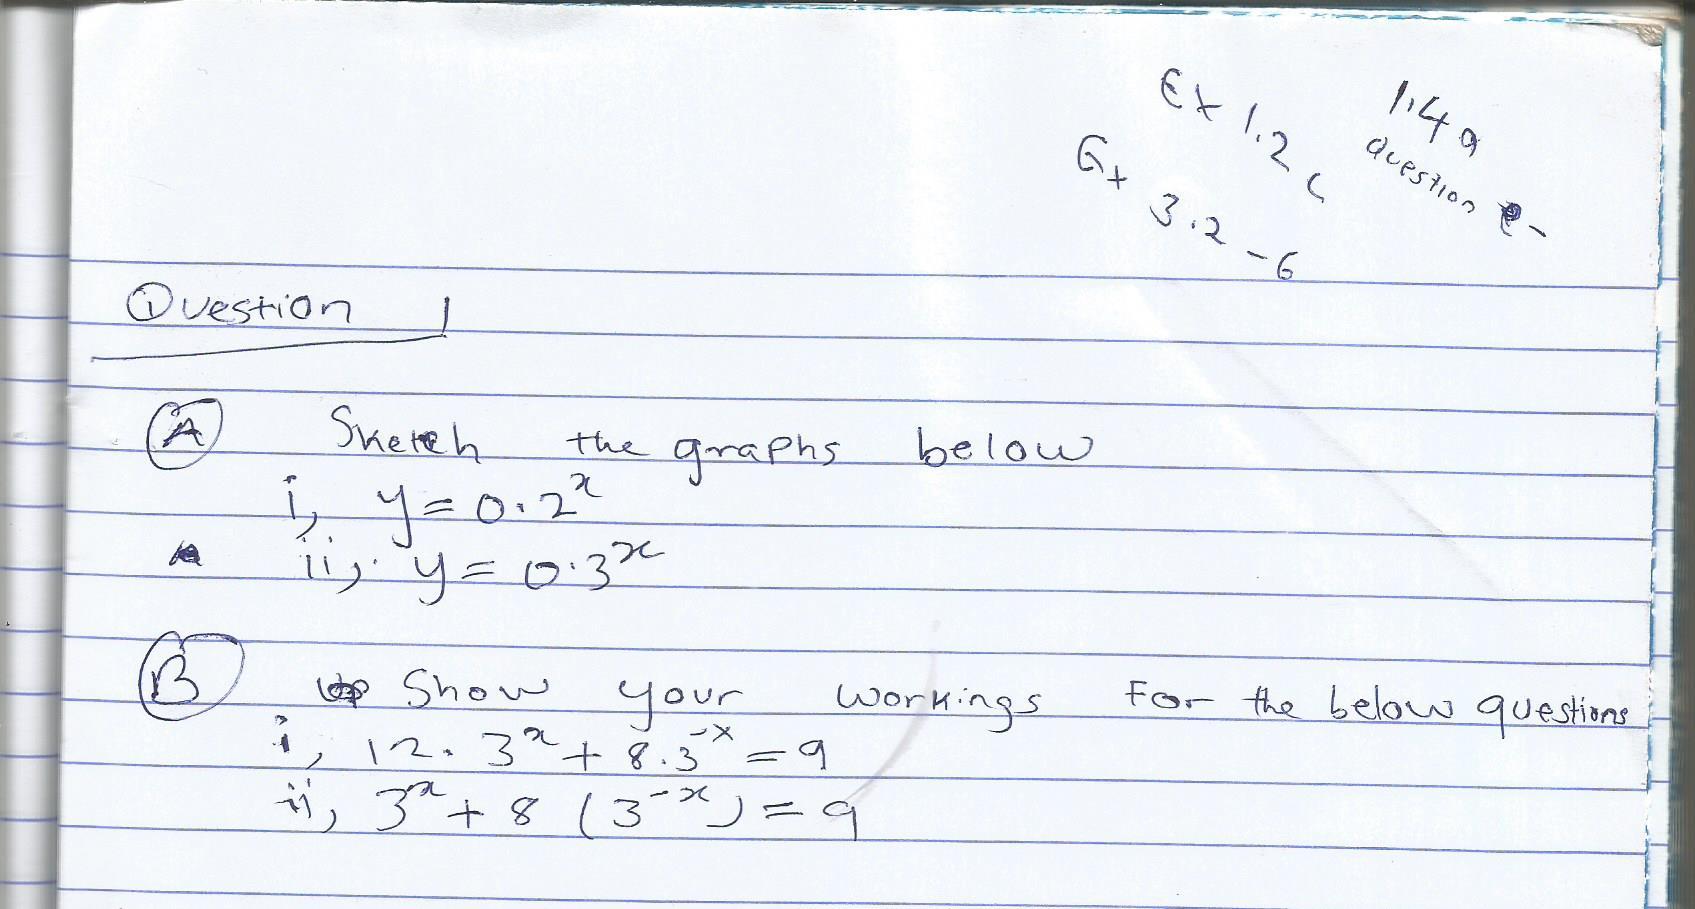 Ex 1.2 c
1.4 a
question
Ex 3.2 - 6
Question 1
A Sketch the graphs below
i, y = 0.2ˣ
ii, y = 0.3ˣ
B Show your workings For the below questions
i, 12. 3ˣ + 8.3⁻ˣ = 9
ii, 3ˣ + 8 (3⁻ˣ) = 9